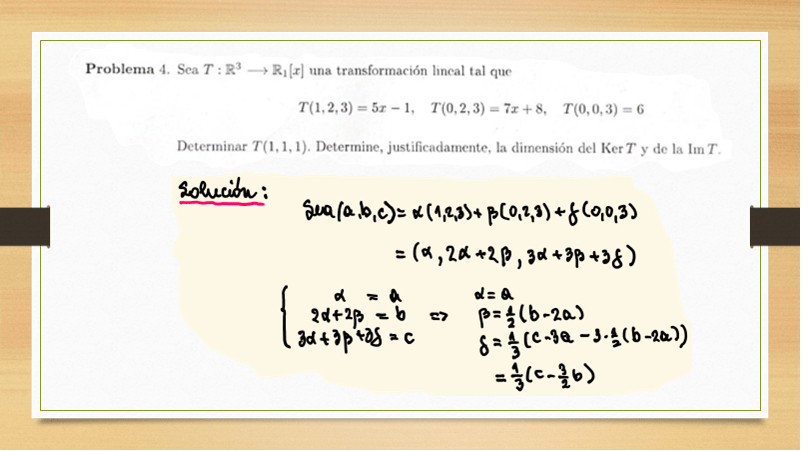 Problema 4. Sea T : ℝ³ ⟶ ℝ₁[x] una transformación lineal tal que
T(1, 2, 3) = 5x − 1, T(0, 2, 3) = 7x + 8, T(0, 0, 3) = 6
Determinar T(1, 1, 1). Determine, justificadamente, la dimensión del Ker T y de la Im T.
Solución:
Sea (a,b,c) = α(1,2,3) + β(0,2,3) + δ(0,0,3)
= (α, 2α + 2β, 3α + 3β + 3δ)
α = a α = a
2α + 2β = b => β = 1/2 (b - 2a)
3α + 3β + 3δ = c δ = 1/3 (c - 3a - 3·1/2 (b - 2a))
= 1/3 (c - 3/2 b)